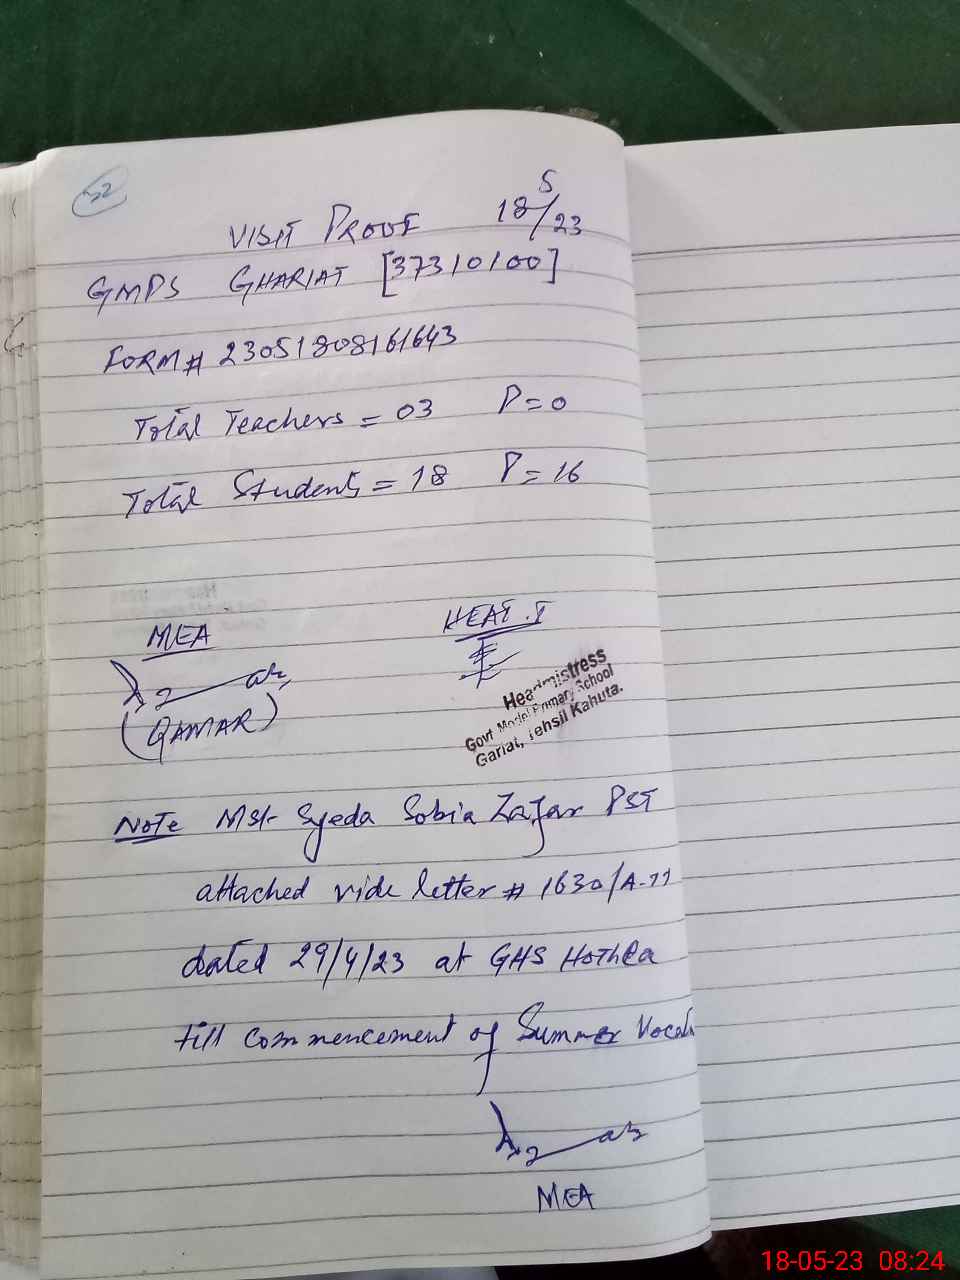 52
VISIT PROOF 18/5/23
GMPS GHARIAT [37310100]
FORM # 23051808161643
Total Teachers = 03 P=0
Total Students = 18 P=16
MEA
(QAMAR)
HEAT.I
Headmistress
Govt Model Primary School
Gariat, Tehsil Kahuta.
Note Mst Syeda Sobia Zafar PST
attached vide letter # 1630/A-11
dated 29/4/23 at GHS Hothla
till commencement of Summer Vocat
MEA
18-05-23 08:24